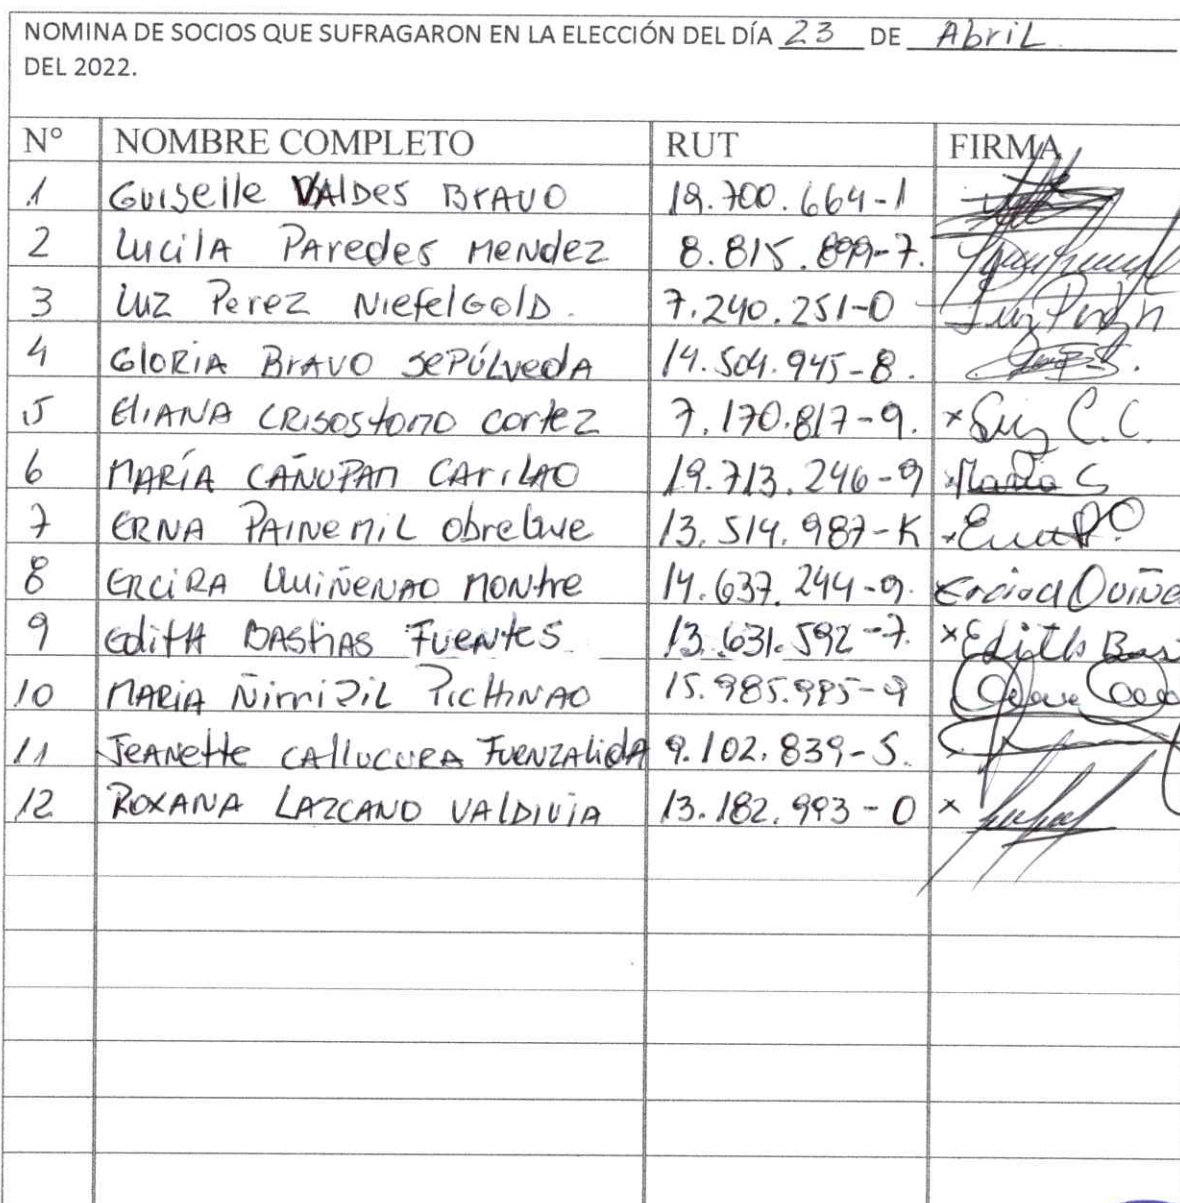 NOMINA DE SOCIOS QUE SUFRAGARON EN LA ELECCIÓN DEL DÍA 23 DE Abril
DEL 2022.
N° NOMBRE COMPLETO RUT FIRMA
1 Guiselle VAlDes BrAVO 19.700.664-1
2 LuciLA PAredes MeNdez 8.815.899-7.
3 Luz Perez NiefelGolD. 7.240.251-0
4 GlORiA BrAVO SePÚLvedA 14.504.945-8.
5 EliANA CRisosTomo cortez 7.170.817-9. x C.C.
6 MARÍA CAÑUPAN CAriLAO 19.713.246-9 x María C
7 ERNA PAINemiL Obreque 13.514.987-K x Erna P O
8 ERCiRA QuiÑENAO MONtre 14.637.244-9.
9 EditH BAStiAS FUENtes 13.631.592-7. x Edith Bas
10 MARiA Ñirripil PicHiNAO 15.985.995-9
11 JEANette CAllUCURA FUENZAlidA 9.102.839-5.
12 ROXANA LAZCANO VAlDiViA 13.182.993-0 x